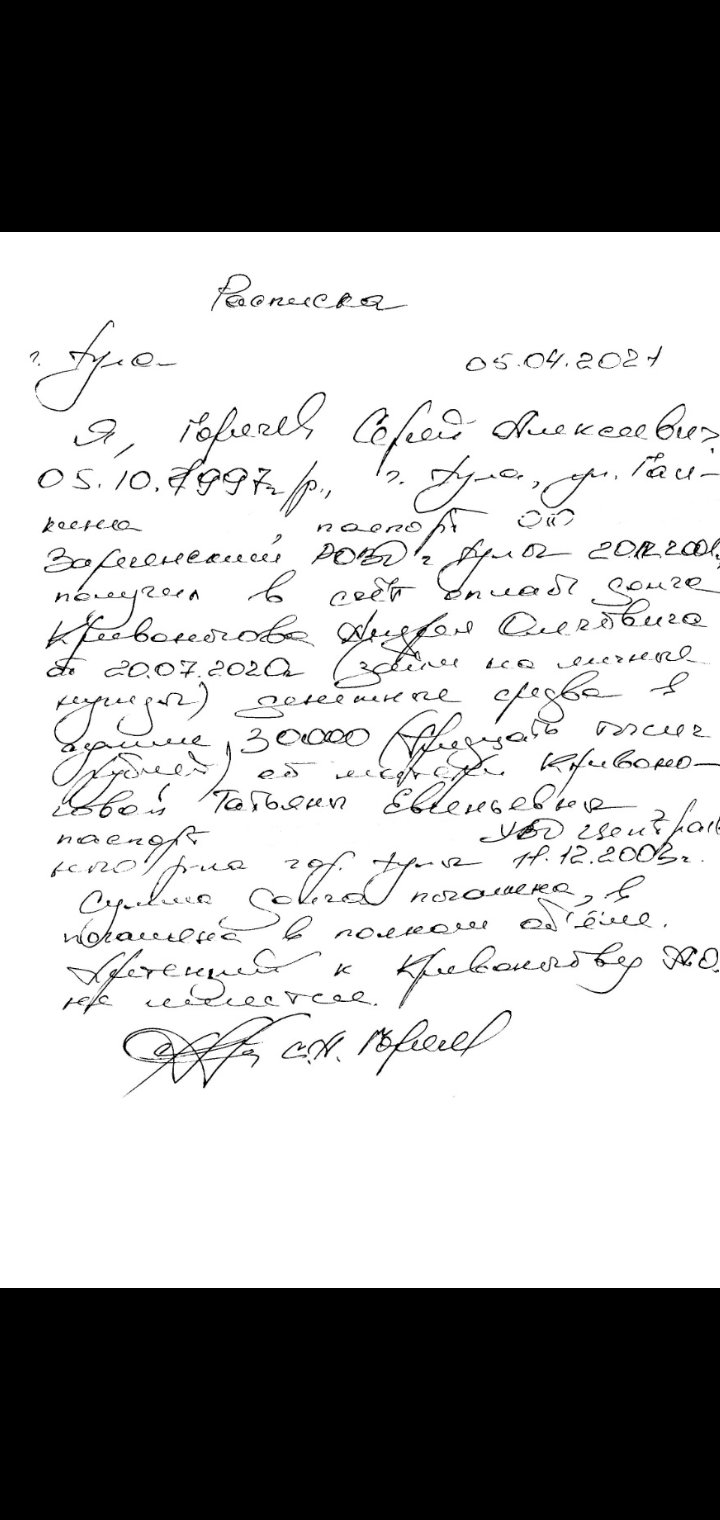 Расписка
г. Тула 05.04.2021
Я, Горячев Сергей Алексеевич
05.10.1997г/р., г. Тула, ул. Гай-
паспорт
Зареченский РОВД г. Тулы 20.12.2001,
получил в счёт оплаты долга
Кривоногова Андрея Олеговича
от 20.07.2020г (займ на личные
нужды) денежные средва в
30.000 (тридцать тысяч
рублей) от матери Кривоно-
говой Татьяны Евгеньевны,
паспорт УВД Централь
ного р-на гор. Тулы 11.12.2003г.
Сумма долга погашена, в
погашена в полном объёме.
Претензий к Кривоногову А.О.
не имеется.
С.А. Горячев